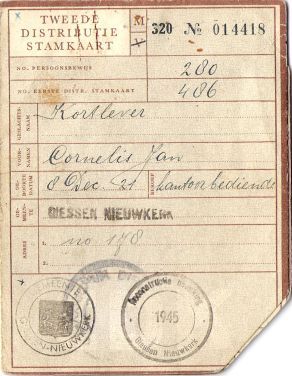 TWEEDE
DISTRIBUTIE
STAMKAART
M
320 № 014418
NO. PERSOONSBEWIJS
280
NO. EERSTE DISTR. STAMKAART
486
GESLACHTS-
NAAM
Kortlever
VOOR-
NAMEN
Cornelis Jan
GE-
BOORTE
DATUM
8 Dec. 21
BEROEP
kantoorbediende
GE-
MEEN-
TE
GIESSEN NIEUWKERK
ADRES
1. no 178
2.
3.
GEMEENTE
GIESSEN-NIEUWKERK
1945
Giessen Nieuwkerk